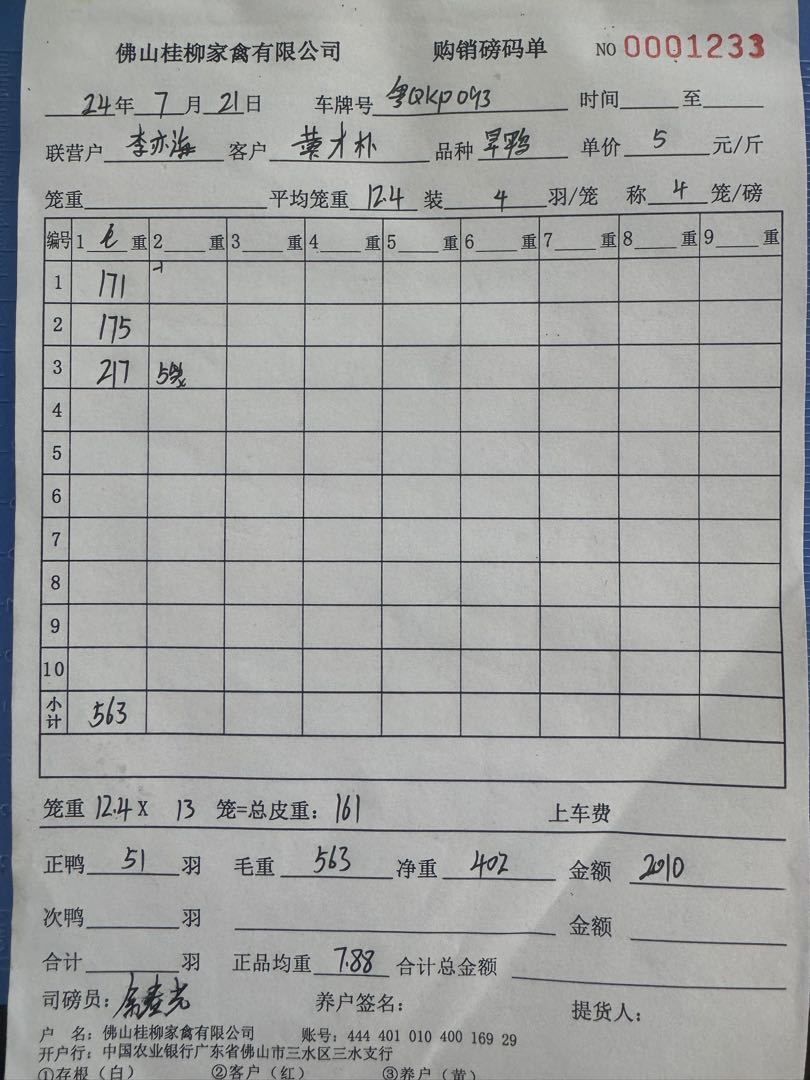 佛山桂柳家禽有限公司 购销磅码单 NO 0001233
24年7月21日 车牌号 粤QKP093 时间 至
联营户 李亦海 客户 黄才朴 品种 旱鸭 单价 5 元/斤
笼重 平均笼重 12.4 装 4 羽/笼 称 4 笼/磅
编号 1 重 2 重 3 重 4 重 5 重 6 重 7 重 8 重 9 重
1 171
2 175
3 217 5笼
4
5
6
7
8
9
10
小计 563
笼重 12.4 X 13 笼=总皮重: 161 上车费
正鸭 51 羽 毛重 563 净重 402 金额 2010
次鸭 羽 金额
合计 羽 正品均重 7.88 合计总金额
司磅员: 养户签名: 提货人:
户 名: 佛山桂柳家禽有限公司 账号: 444 401 010 400 169 29
开户行: 中国农业银行广东省佛山市三水区三水支行
①存根(白) ②客户(红) ③养户(黄)